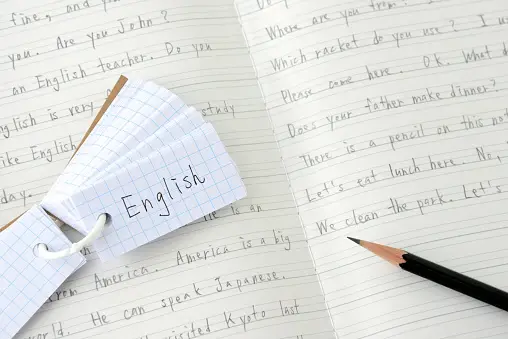 fine, and
you. Are you John?
an English teacher. Do you
English is very
study
like English
day.
is an
from America. America is a big
world. He can speak Japanese.
visited Kyoto last
English
Do you
Where are you from?
Which racket do you use? I
Please come here. OK. What
Does your father make dinner?
There is a pencil on this
Let's eat lunch here. No,
We clean the park. Let's